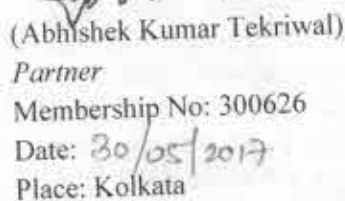 (Abhishek Kumar Tekriwal)
Partner
Membership No: 300626
Date: 30/05/2017
Place: Kolkata